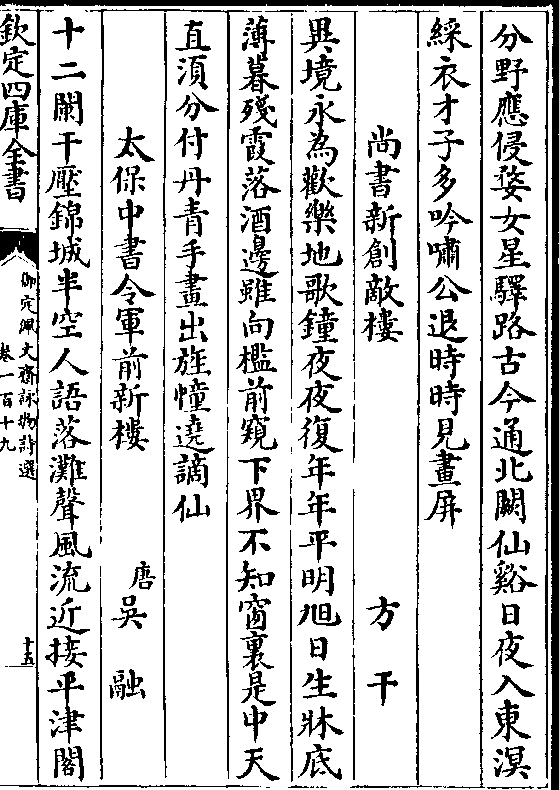 分野應侵婺女星驛路古今通北闕仙谿日夜入東溟
綵衣才子多吟嘯公退時時見畫屏
尚書新創敵樓 方干
異境永為歡樂地歌鐘夜夜復年年平明旭日生牀底
薄暮殘霞落酒邊雖向檻前窺下界不知窗裏是中天
直湏分付丹青手畫出旌幢遶謫仙
太保中書令軍前新樓 唐吳融
十二闌干壓錦城半空人語落灘聲風流近接平津閣
欽定四庫全書
御定佩文齋詠物詩選
卷一百十九
十五